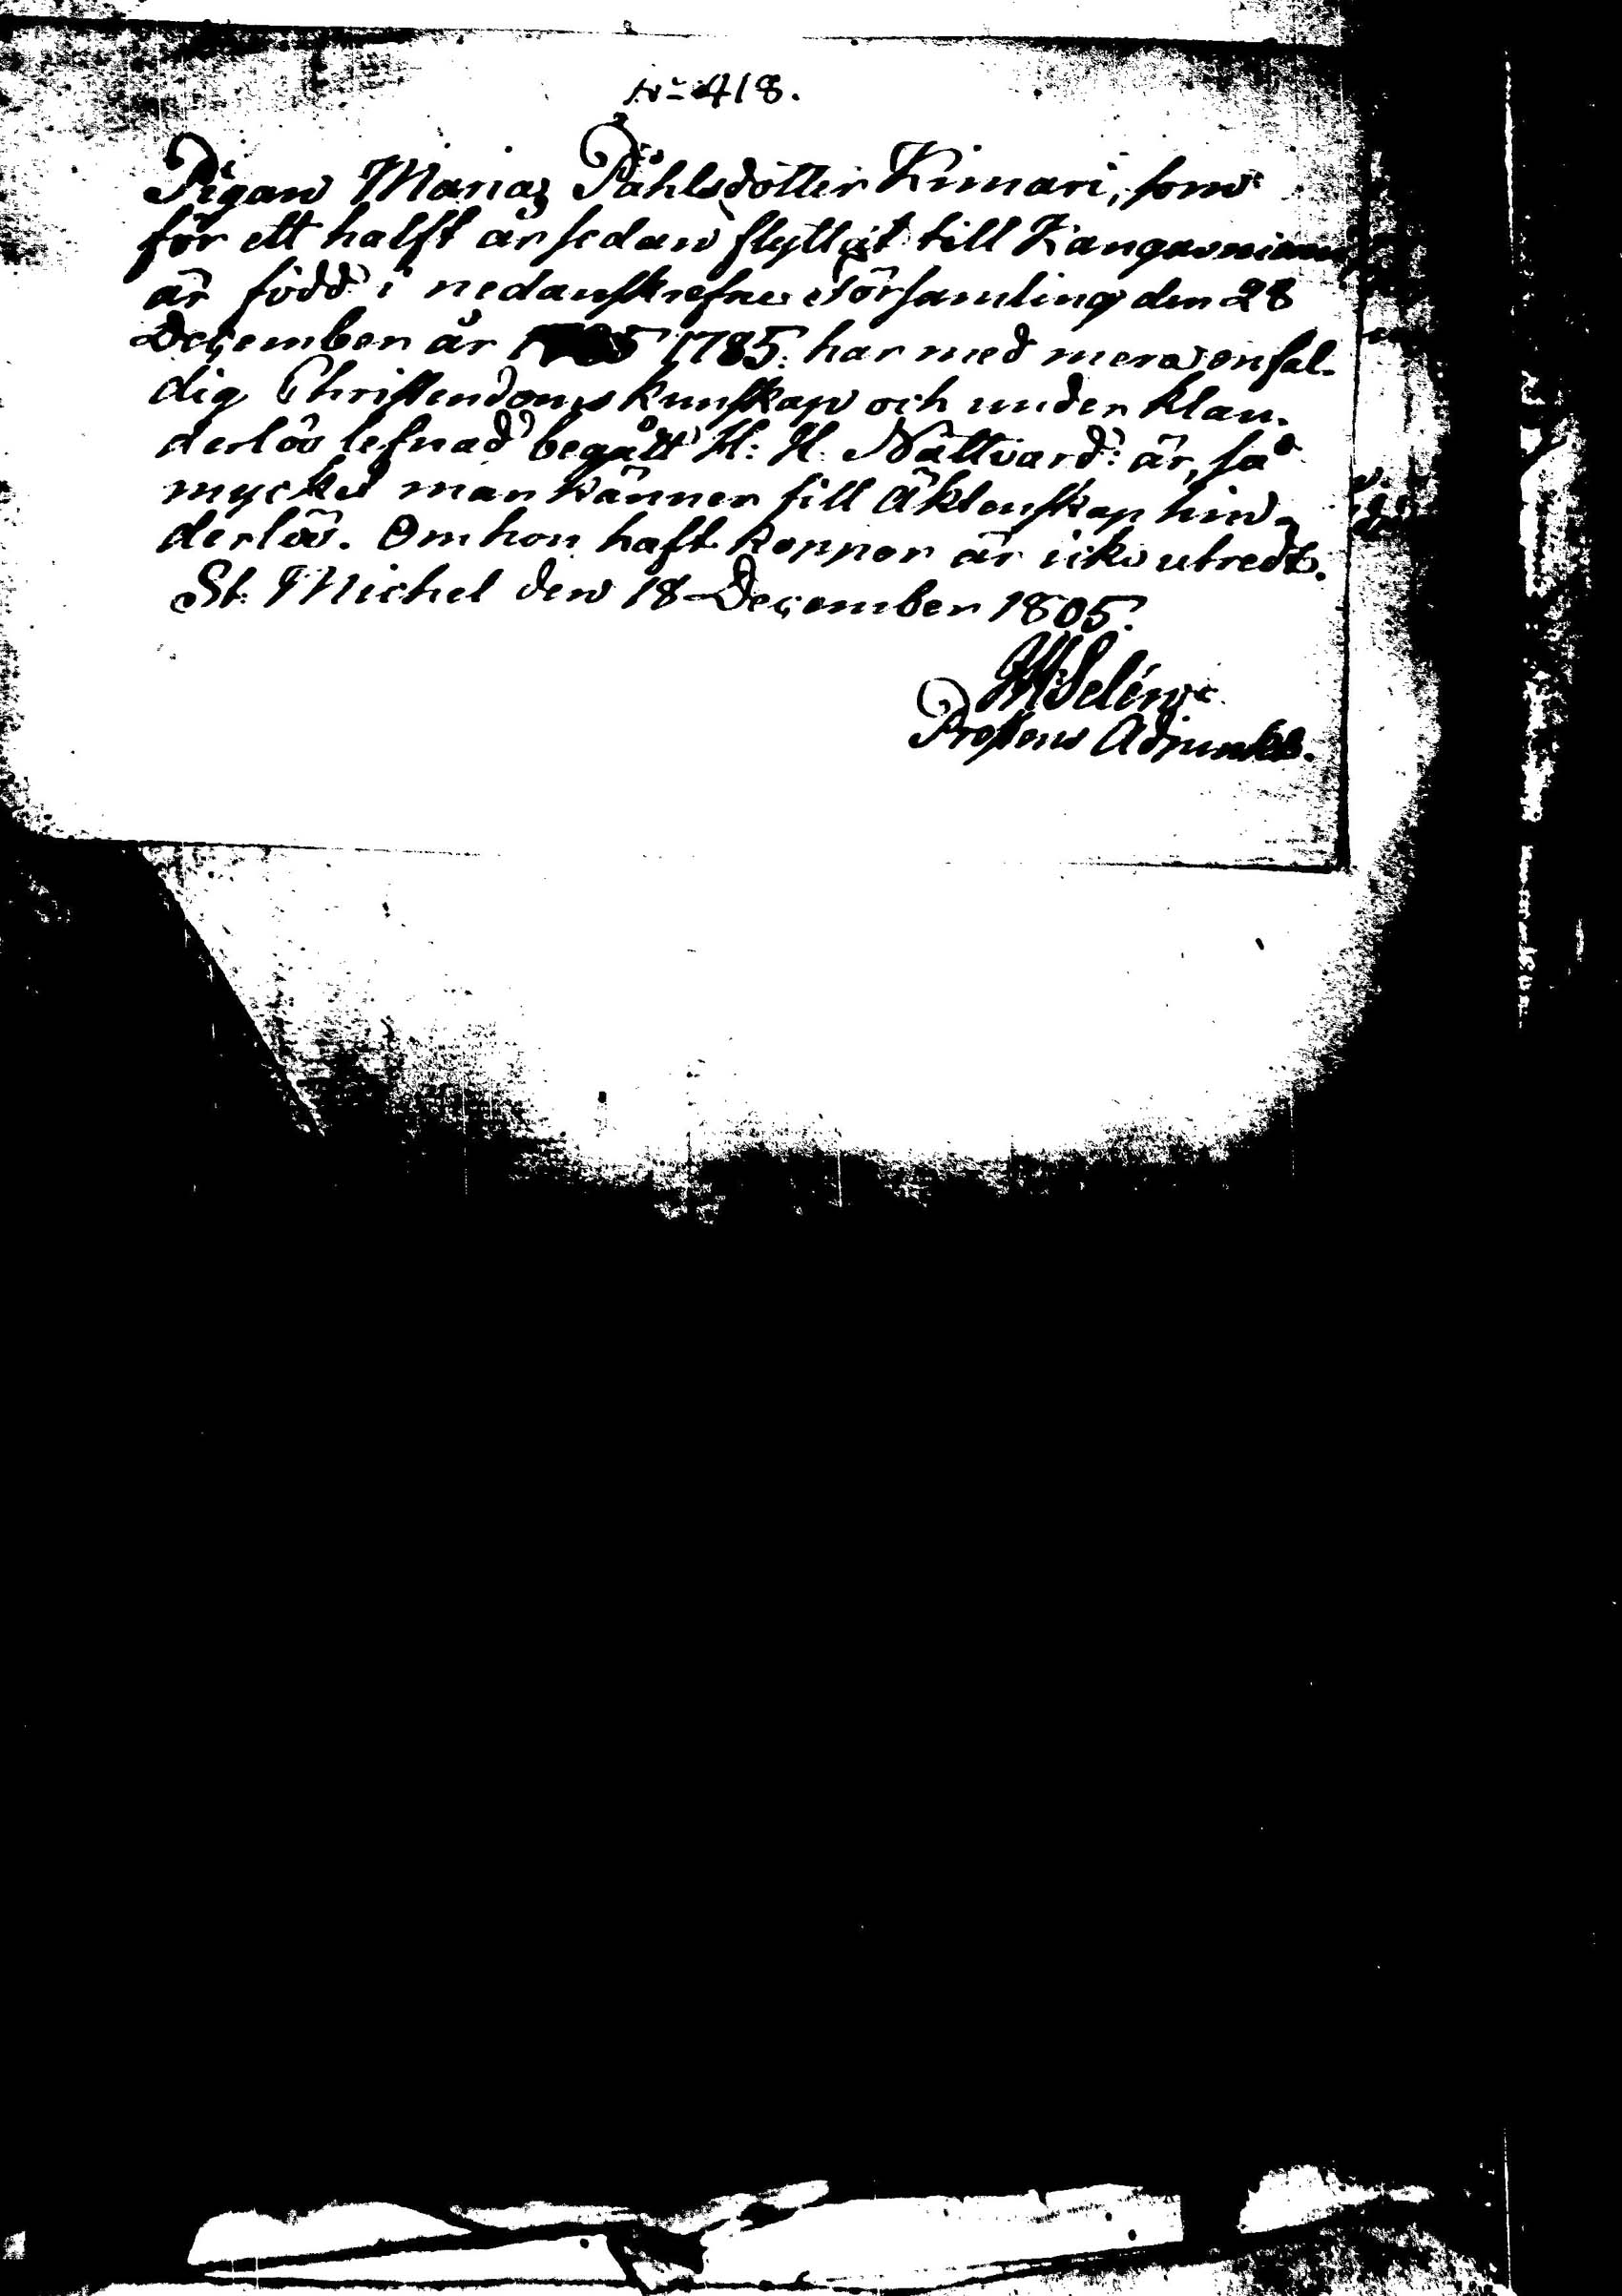 No 418.
Pigan Maria Påhlsdotter Kinnari, som
för ett halft år sedan flyttat till Kangasniemi
är född i nedanskrefne Församling den 28
December år 1785. har med mera enfal-
dig Christendoms kunskap och under klan-
derlös lefnad begått H: H. Nattvard: är, så
mycket man känner till Äktenskap hin-
derlös. Om hon haft koppor är icke utredt.
St. Michel den 18 December 1805.
Selin
Prostens Adjunkt.